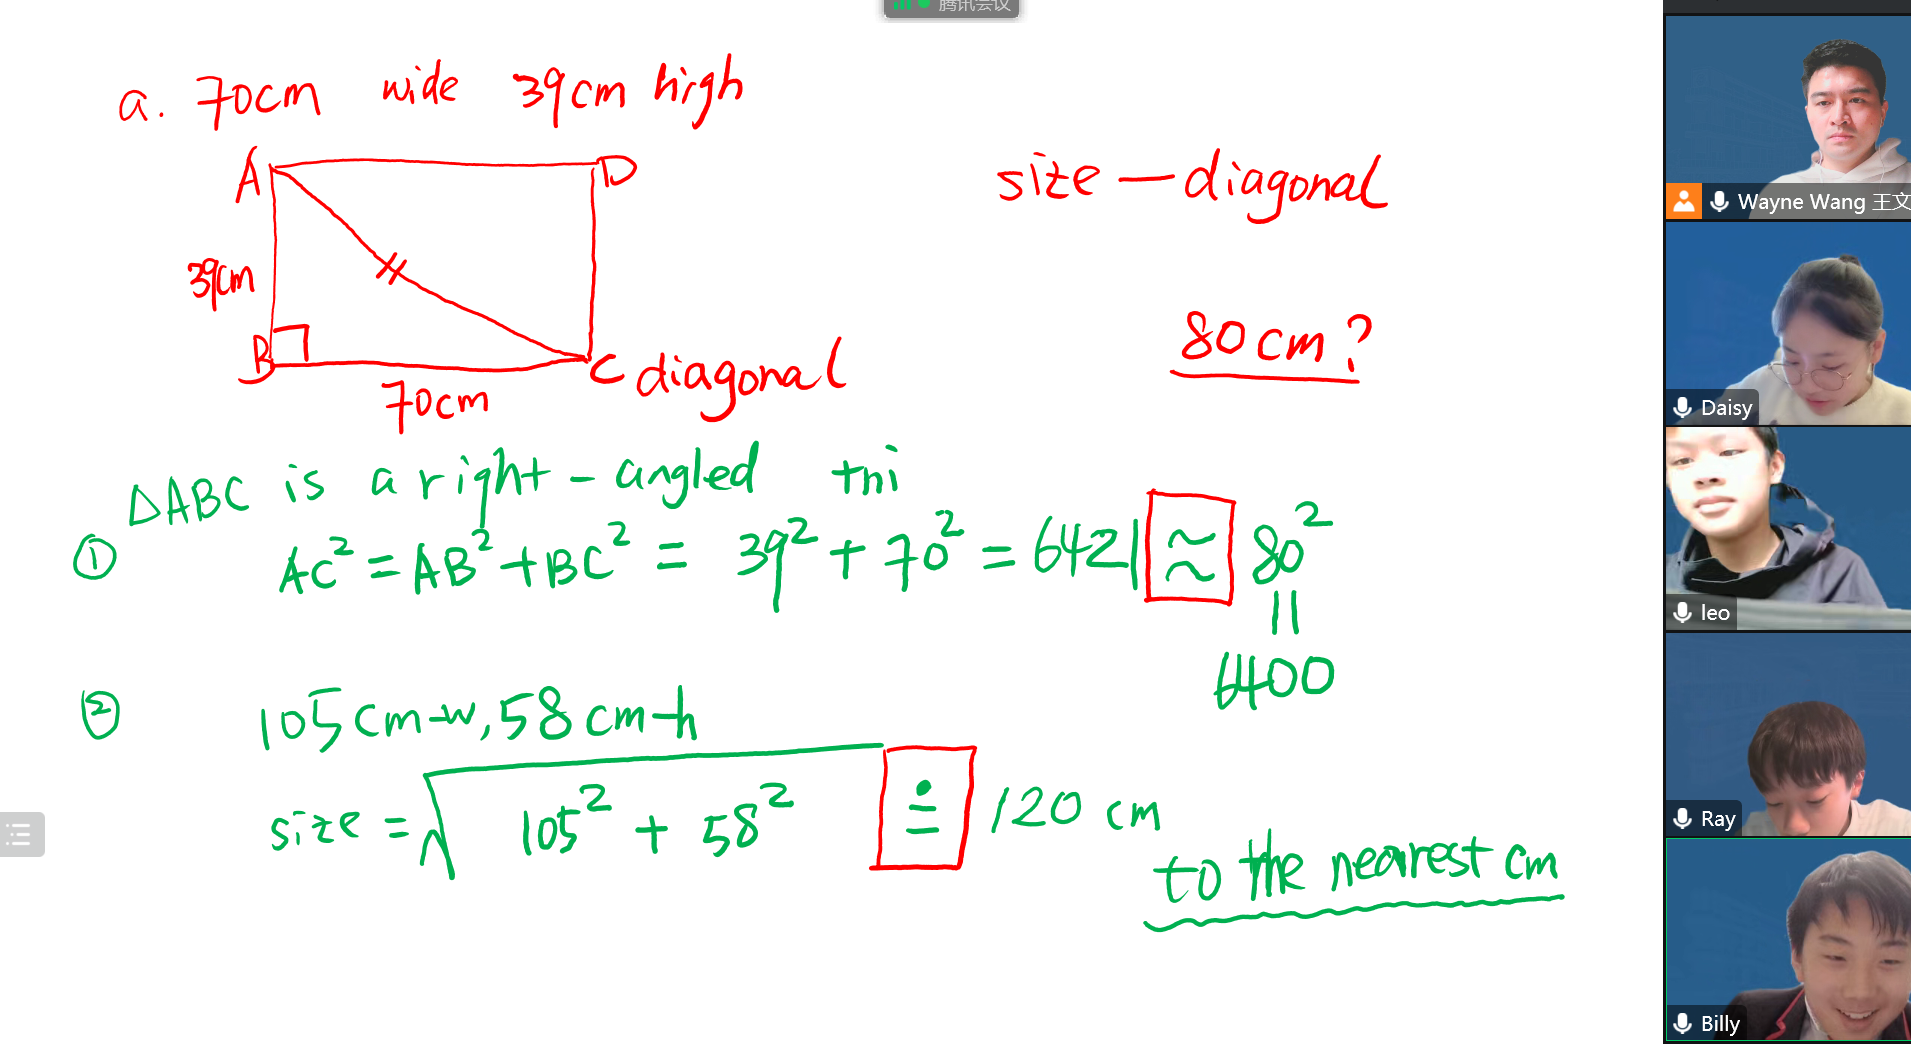 腾讯会议
a. 70cm wide 39cm high
A
D
size — diagonal
39cm
80cm?
B
C diagonal
70cm
△ABC is a right - angled tri
① AC² = AB² + BC² = 39² + 70² = 6421 ≈ 80²
||
6400
② 105cm-w, 58cm-h
size = √105² + 58² ≐ 120 cm
to the nearest cm
Wayne Wang 王文
Daisy
leo
Ray
Billy